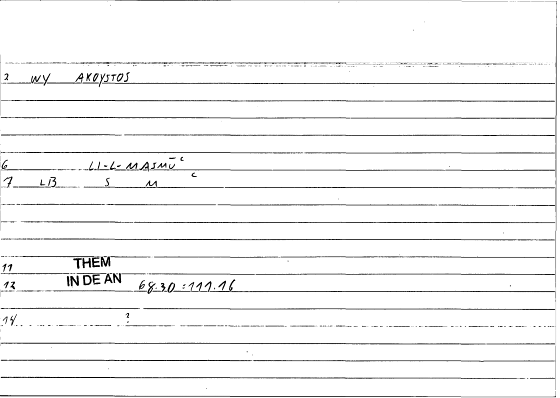 2 WY AKOYSTOS
6 LI-L-MASMŪ ͨ
7 LB S M ͨ
11 THEM
12 IN DE AN 68.30 = 111.16
14 ?